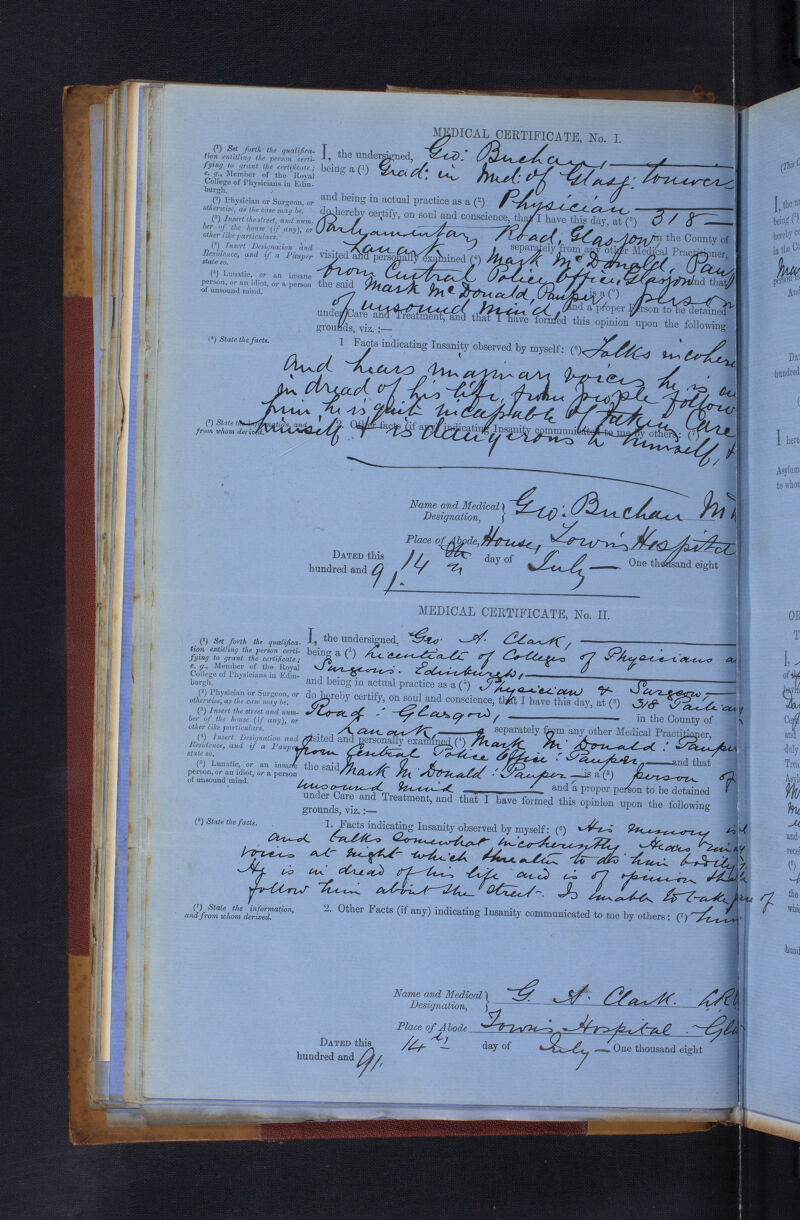 MEDICAL CERTIFICATE, No. I.
(¹) Set forth the qualifica-
tion entitling the person certi-
fying to grant the certificate;
e. g., Member of the Royal
College of Physicians in Edin-
burgh.
(²) Physician or Surgeon, or
otherwise, as the case may be.
(³) Insert the street, and num-
ber of the house (if any), or
other like particulars.
(⁴) Insert Designation and
Residence, and if a Pauper
state so.
(⁵) Lunatic, or an insane
person, or an idiot, or a person
of unsound mind.
I, the undersigned, Geo: Buchan,
being a (¹) Grad: in Med: of Glasg:
and being in actual practice as a (²) Physician
do hereby certify, on soul and conscience, that I have this day, at (³) 318
Parliamentary Road, Glasgow in the County of
Lanark separately from any other Medical Practitioner,
visited and personally examined (⁴) Mark McDonald, Paup
from Central Police Office, Glasgow and that
the said Mark McDonald, Pauper, is a (⁵) person
of unsound mind, and a proper person to be detained
under Care and Treatment, and that I have formed this opinion upon the following
grounds, viz. :—
(⁶) State the facts.
1 Facts indicating Insanity observed by myself: (⁶) Talks incohere
and hears imaginary voices he is
in dread of his life, from people follow
him he is quite incapable of taking care
(⁷) State the information, and
from whom derived.
2. Other facts (if any) indicating Insanity communicated to me by others: (⁷)
himself & is dangerous to himself, &
Name and Medical
Designation,
Geo: Buchan M
Place of Abode, House, Town's Hospital
DATED this 14th day of July One thousand eight
hundred and 91.
MEDICAL CERTIFICATE, No. II.
(¹) Set forth the qualifica-
tion entitling the person certi-
fying to grant the certificate;
e. g., Member of the Royal
College of Physicians in Edin-
burgh.
(²) Physician or Surgeon, or
otherwise, as the case may be.
(³) Insert the street and num-
ber of the house (if any), or
other like particulars.
(⁴) Insert Designation and
Residence, and if a Pauper
state so.
(⁵) Lunatic, or an insane
person, or an idiot, or a person
of unsound mind.
I, the undersigned, Geo A. Clark,
being a (¹) Licentiate of Colleges of Physicians a
Surgeons. Edinburgh,
and being in actual practice as a (²) Physician & Surgeon,
do hereby certify, on soul and conscience, that I have this day, at (³) 318 Parliam
Road: Glasgow, in the County of
Lanark, separately from any other Medical Practitioner,
visited and personally examined (⁴) Mark McDonald: Pauper
from Central Police Office: Pauper and that
the said Mark McDonald: Pauper is a (⁵) person of
unsound mind and a proper person to be detained
under Care and Treatment, and that I have formed this opinion upon the following
grounds, viz. :—
(⁶) State the facts.
1. Facts indicating Insanity observed by myself: (⁶) His memory is
and talks somewhat incoherently Hears
voices at night which threaten to do him bodily
He is in dread of his life and is of opinion
follow him about the street. Is unable to take care of
(⁷) State the information,
and from whom derived.
2. Other Facts (if any) indicating Insanity communicated to me by others: (⁷) him
Name and Medical
Designation,
G. A. Clark. LR
Place of Abode Town's Hospital. Gla
DATED this 14th day of July One thousand eight
hundred and 91.